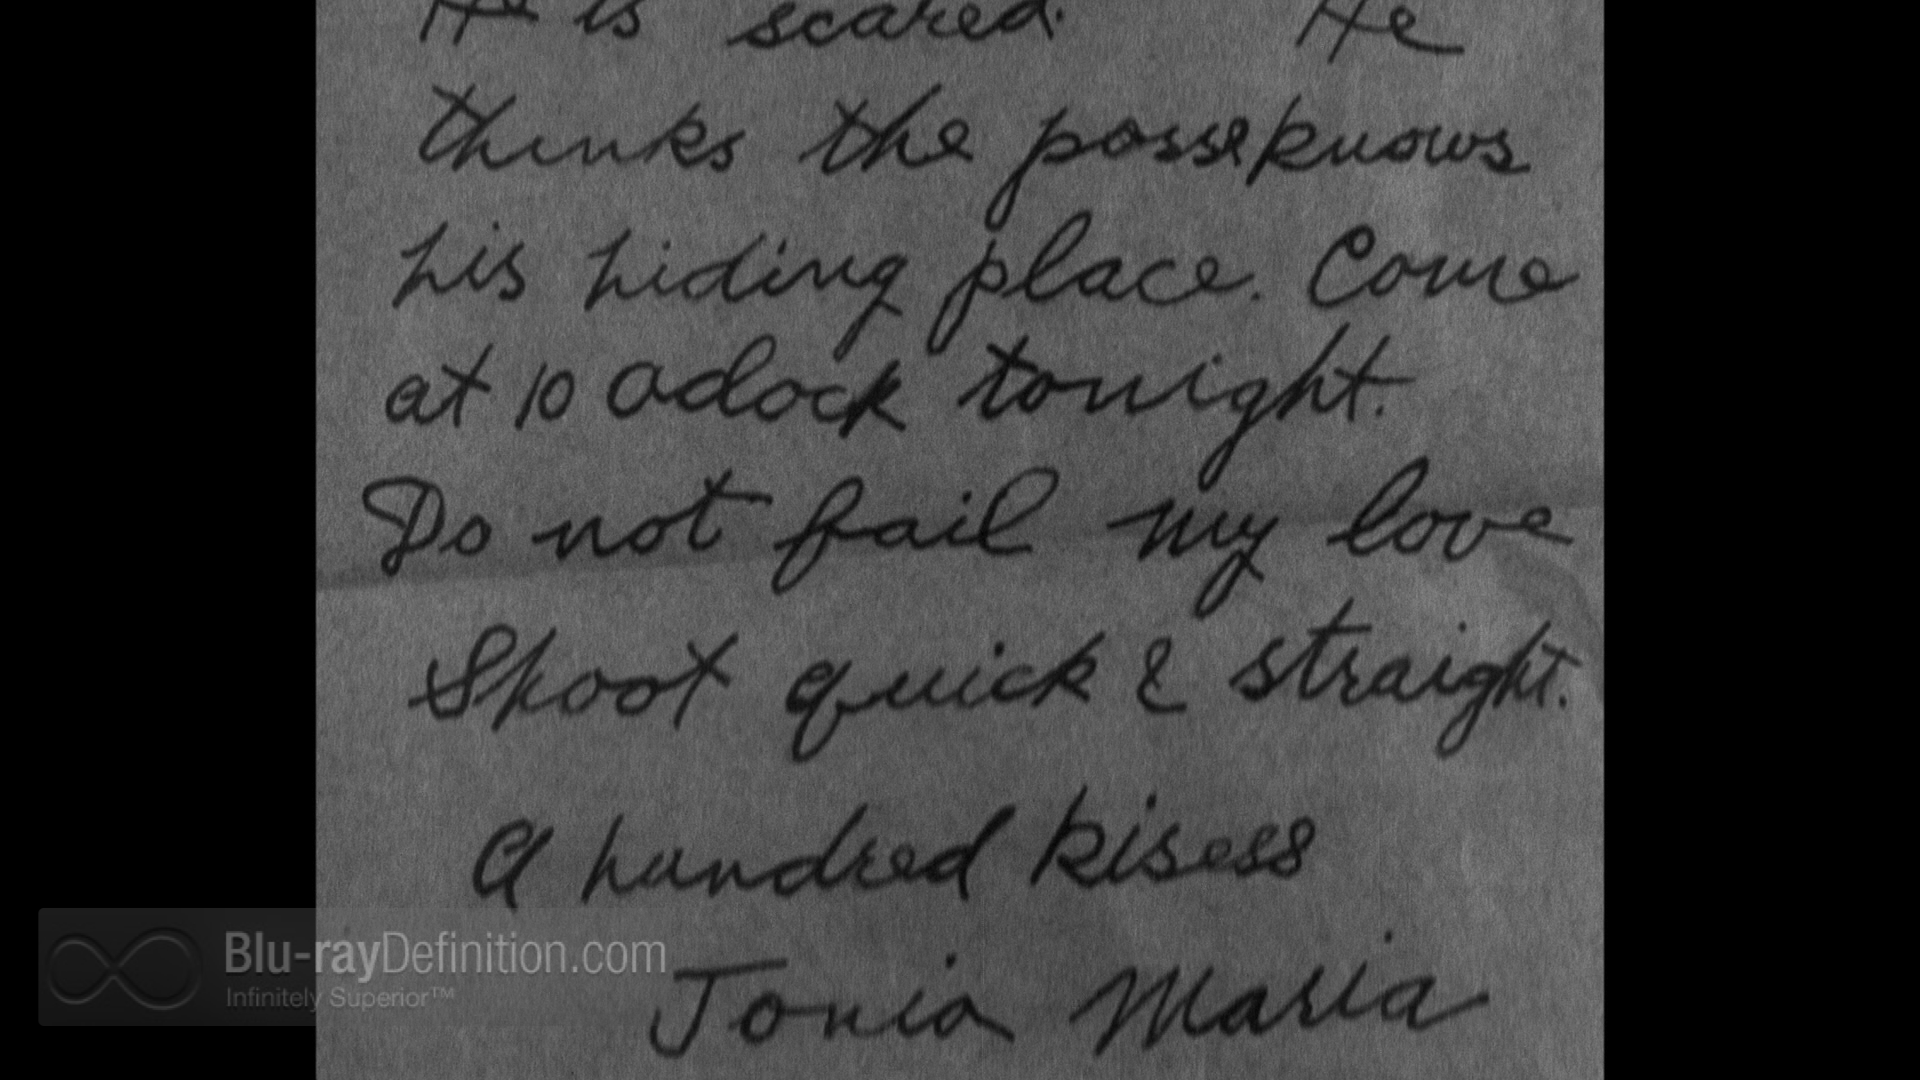 He is scared. He
thinks the posse knows
his hiding place. Come
at 10 Oclock tonight.
Do not fail my love
Shoot quick & straight.
A hundred kisess
Tonia Maria
Blu-rayDefinition.com
Infinitely Superior™